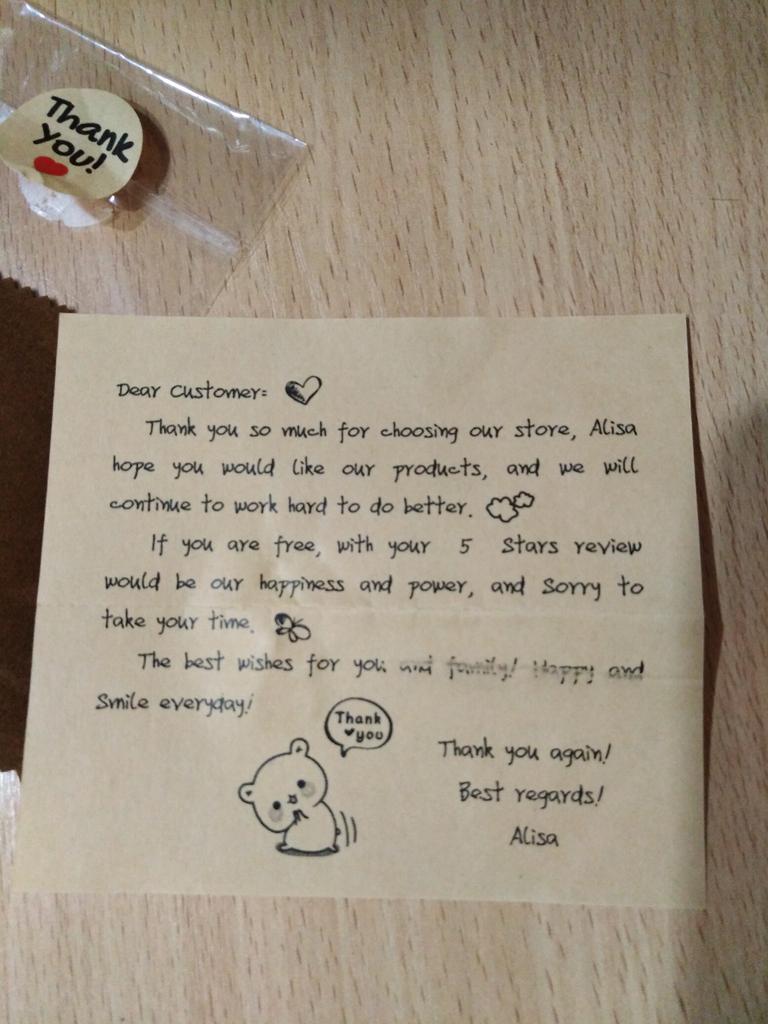 Thank
you!
Dear Customer:
Thank you so much for choosing our store, Alisa
hope you would like our products, and we will
continue to work hard to do better.
If you are free, with your 5 Stars review
would be our happiness and power, and Sorry to
take your time.
The best wishes for you and family! Happy and
Smile everyday!
Thank
you
Thank you again!
Best regards!
Alisa